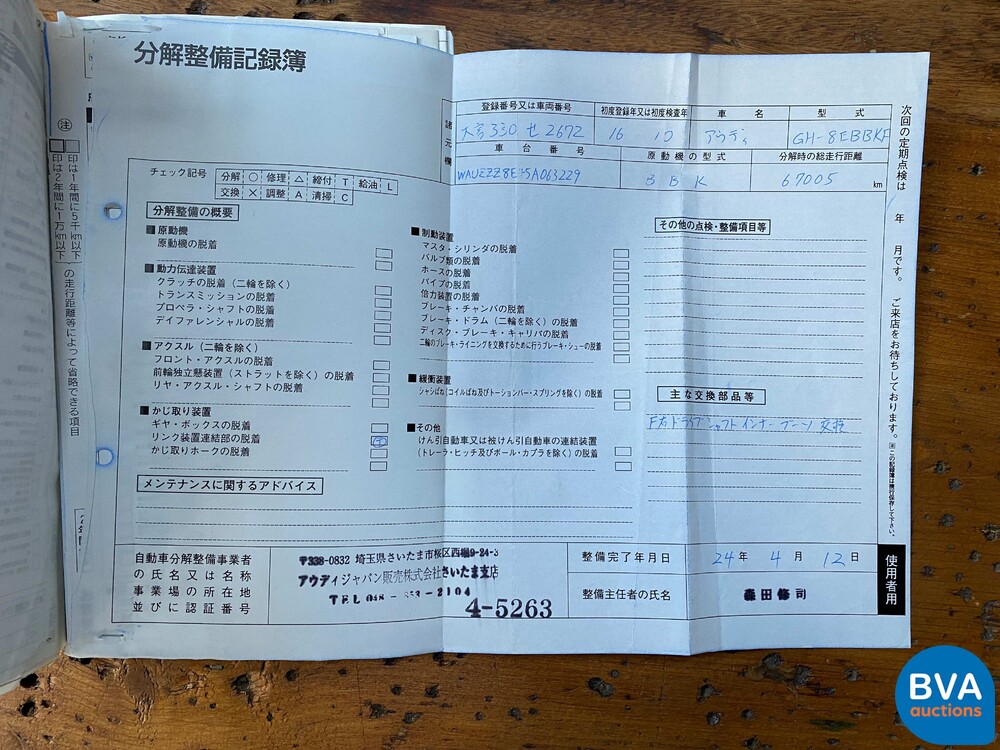 分解整備記録簿
登録番号又は車両番号
初度登録年又は初度検査年
車名
型式
諸元欄
330 せ 2672
16 10
アウディ
GH-8EBBKF
車台番号
原動機の型式
分解時の総走行距離
BBK
67005 km
チェック記号
分解 ○ 修理 △ 締付 T 給油 L
交換 × 調整 A 清掃 C
分解整備の概要
■原動機
原動機の脱着
■動力伝達装置
クラッチの脱着（二輪を除く）
トランスミッションの脱着
プロペラ・シャフトの脱着
デイファレンシャルの脱着
■アクスル（二輪を除く）
フロント・アクスルの脱着
前輪独立懸架装置（ストラットを除く）の脱着
リヤ・アクスル・シャフトの脱着
■かじ取り装置
ギヤ・ボックスの脱着
リンク装置連結部の脱着
かじ取りホークの脱着
■制動装置
マスタ・シリンダの脱着
バルブ類の脱着
ホースの脱着
パイプの脱着
倍力装置の脱着
ブレーキ・チャンバの脱着
ブレーキ・ドラム（二輪を除く）の脱着
ディスク・ブレーキ・キャリパの脱着
二輪のブレーキ・ライニングを交換するために行うブレーキ・シューの脱着
■緩衝装置
シャシばね（コイルばね及びトーションバー・スプリングを除く）の脱着
■その他
けん引自動車又は被けん引自動車の連結装置
（トレーラ・ヒッチ及びボール・カプラを除く）の脱着
その他の点検・整備項目等
主な交換部品等
ドライブシャフトインナーブーツ 交換
メンテナンスに関するアドバイス
自動車分解整備事業者
の氏名又は名称
事業場の所在地
並びに認証番号
〒338-0832 埼玉県さいたま市桜区西堀9-24-3
アウディジャパン販売株式会社さいたま支店
TEL 048-853-2104
4-5263
整備完了年月日
24年 4月 12日
整備主任者の氏名
森田修司
次回の定期点検は 年 月です。 ご来店をお待ちしております。
※この記録簿は携行保存して下さい。
使用者用
注
印は1年間に5千km以下
印は2年間に1万km以下
の走行距離等によって省略できる項目
BVA
auctions